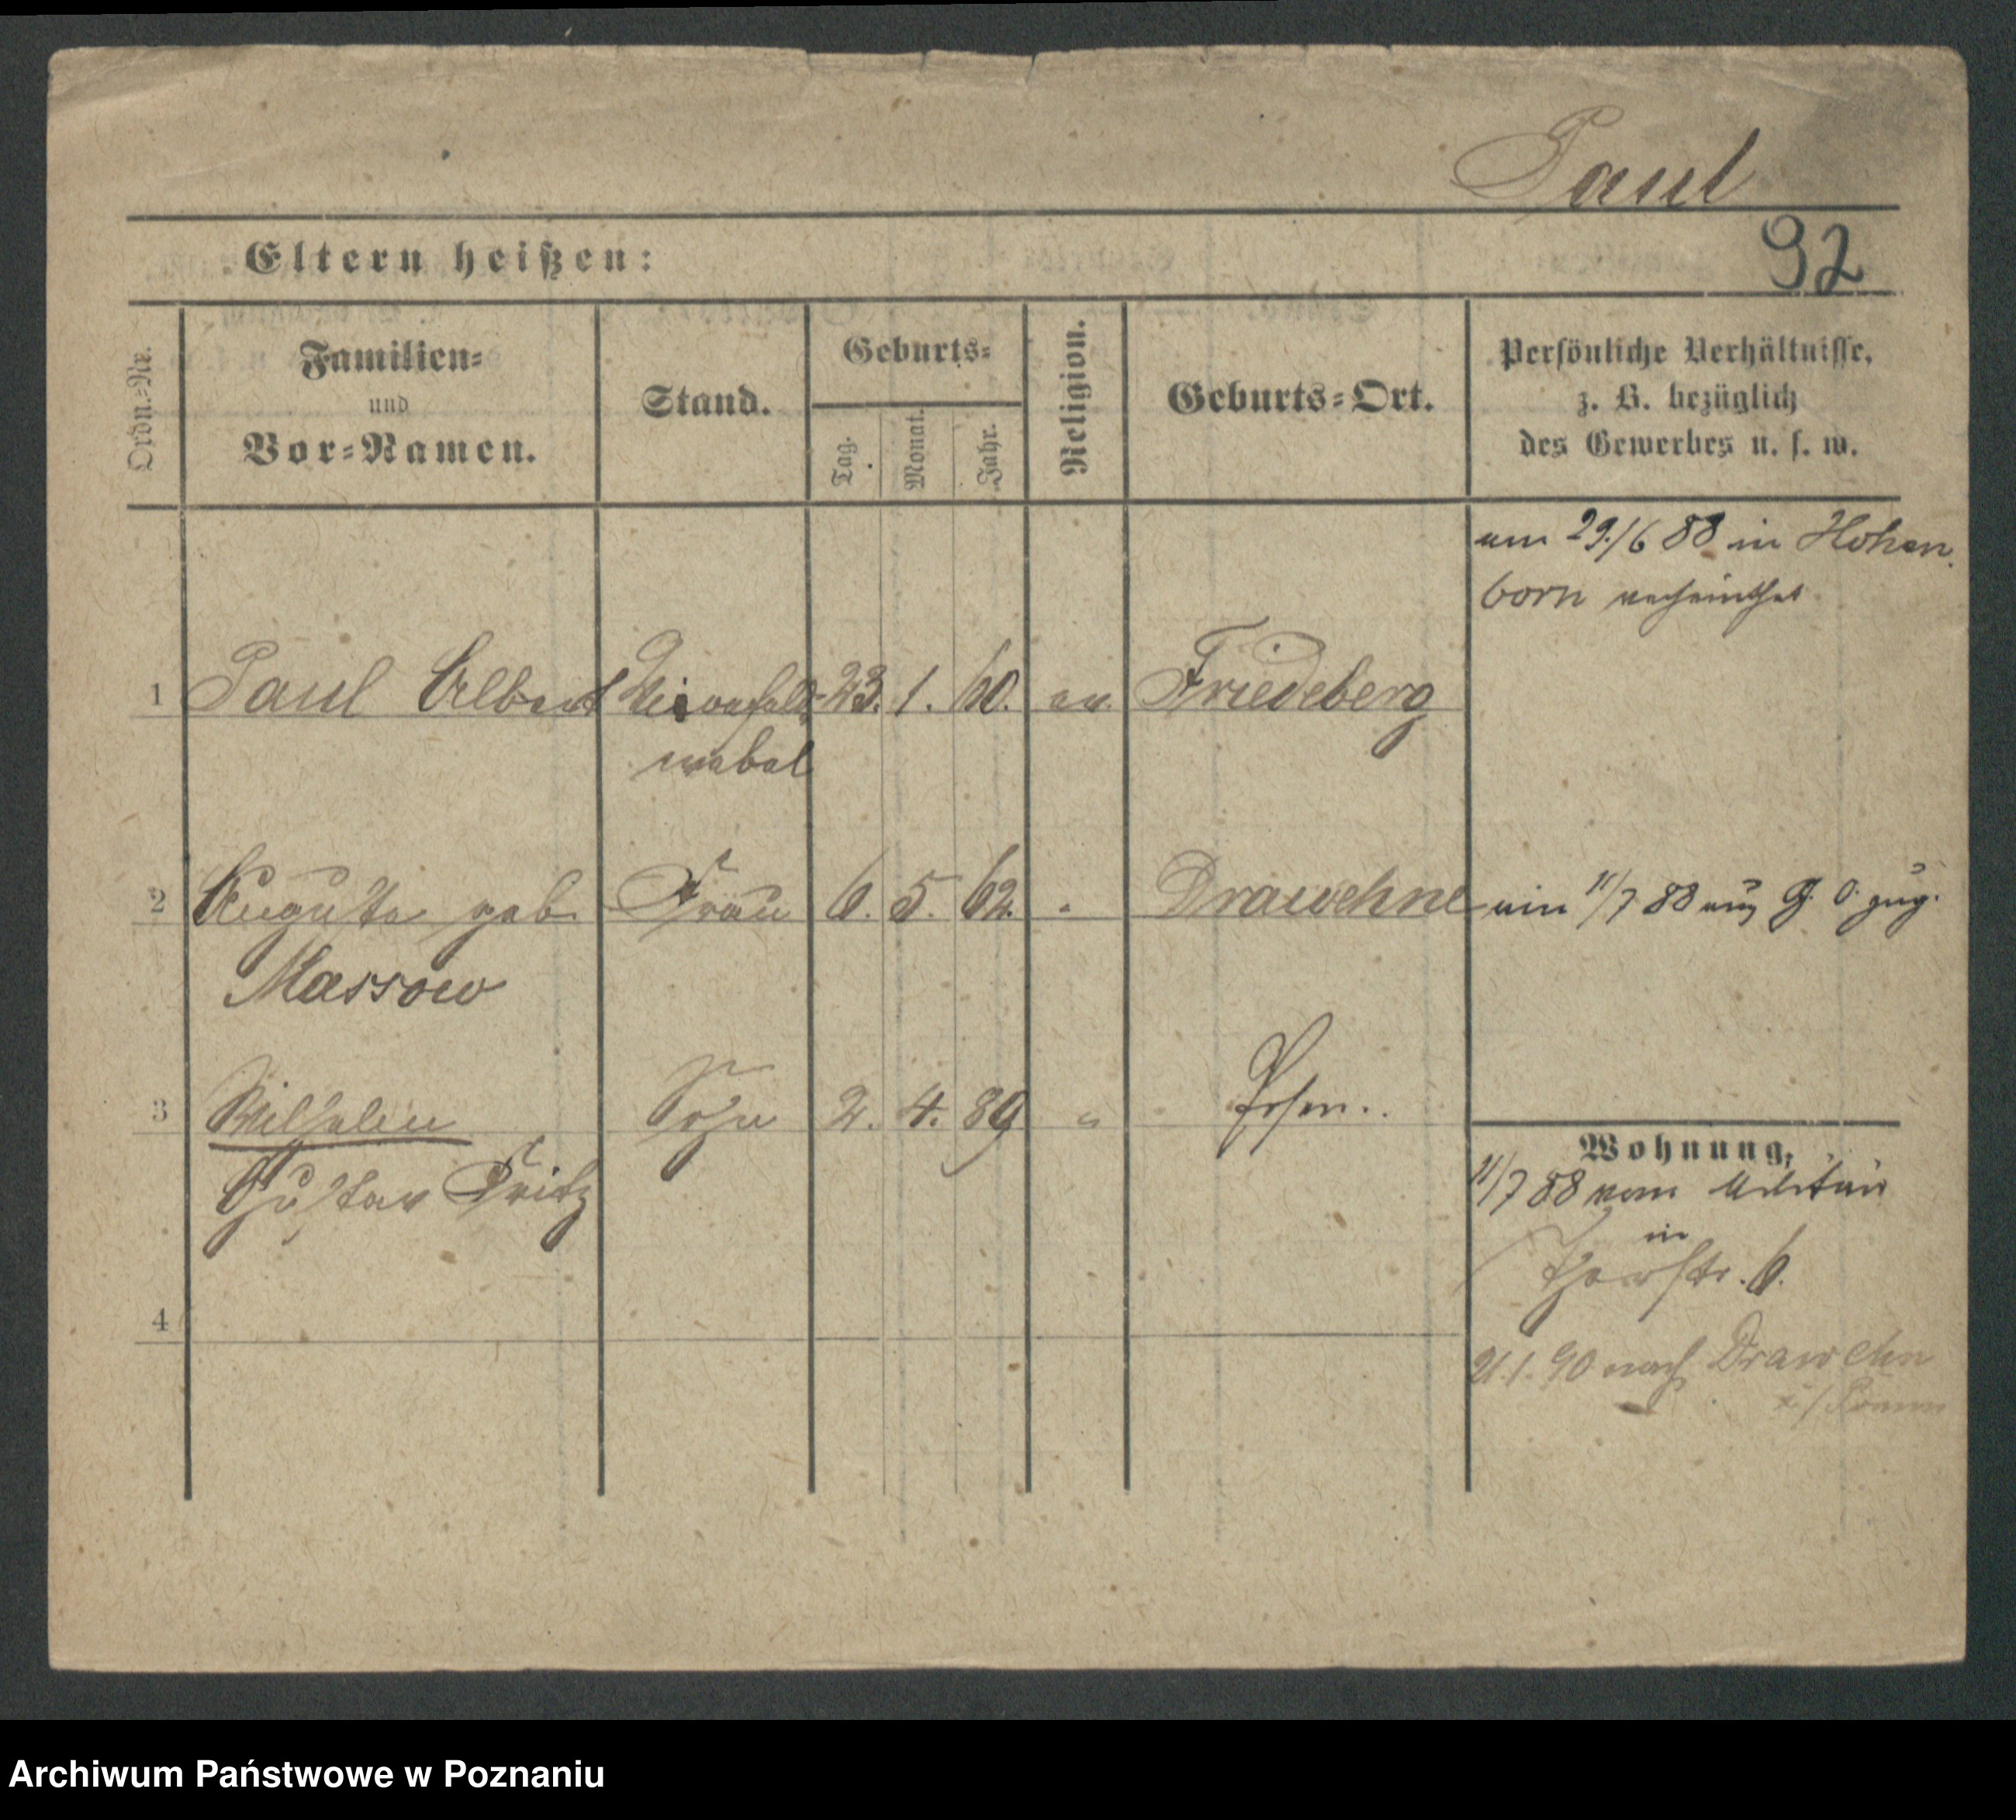 Paul
92
Eltern heißen:
Ordn.=Nr.
Familien=
und
Vor=Namen.
Stand.
Geburts=
Tag.
Monat.
Jahr.
Religion.
Geburts=Ort.
Persönliche Verhältnisse,
z. B. bezüglich
des Gewerbes u. s. w.
am 29./6 88 in Hohen
born verheirathet
1 Paul Albert Vicefeld= 23. 1. 60. ev. Friedeberg
webel
2 Auguste geb. Frau 6. 5. 62. " Drawehne ein 11/7 88 aus G. O. zug.
Massow
3 Wilhelm Sohn 2. 4. 89 " Posen.
Gustav Fritz
Wohnung,
11/7 88 vom Militär
in
Thorstr. 6.
4
21.1.90 nach Drawehn
Archiwum Państwowe w Poznaniu